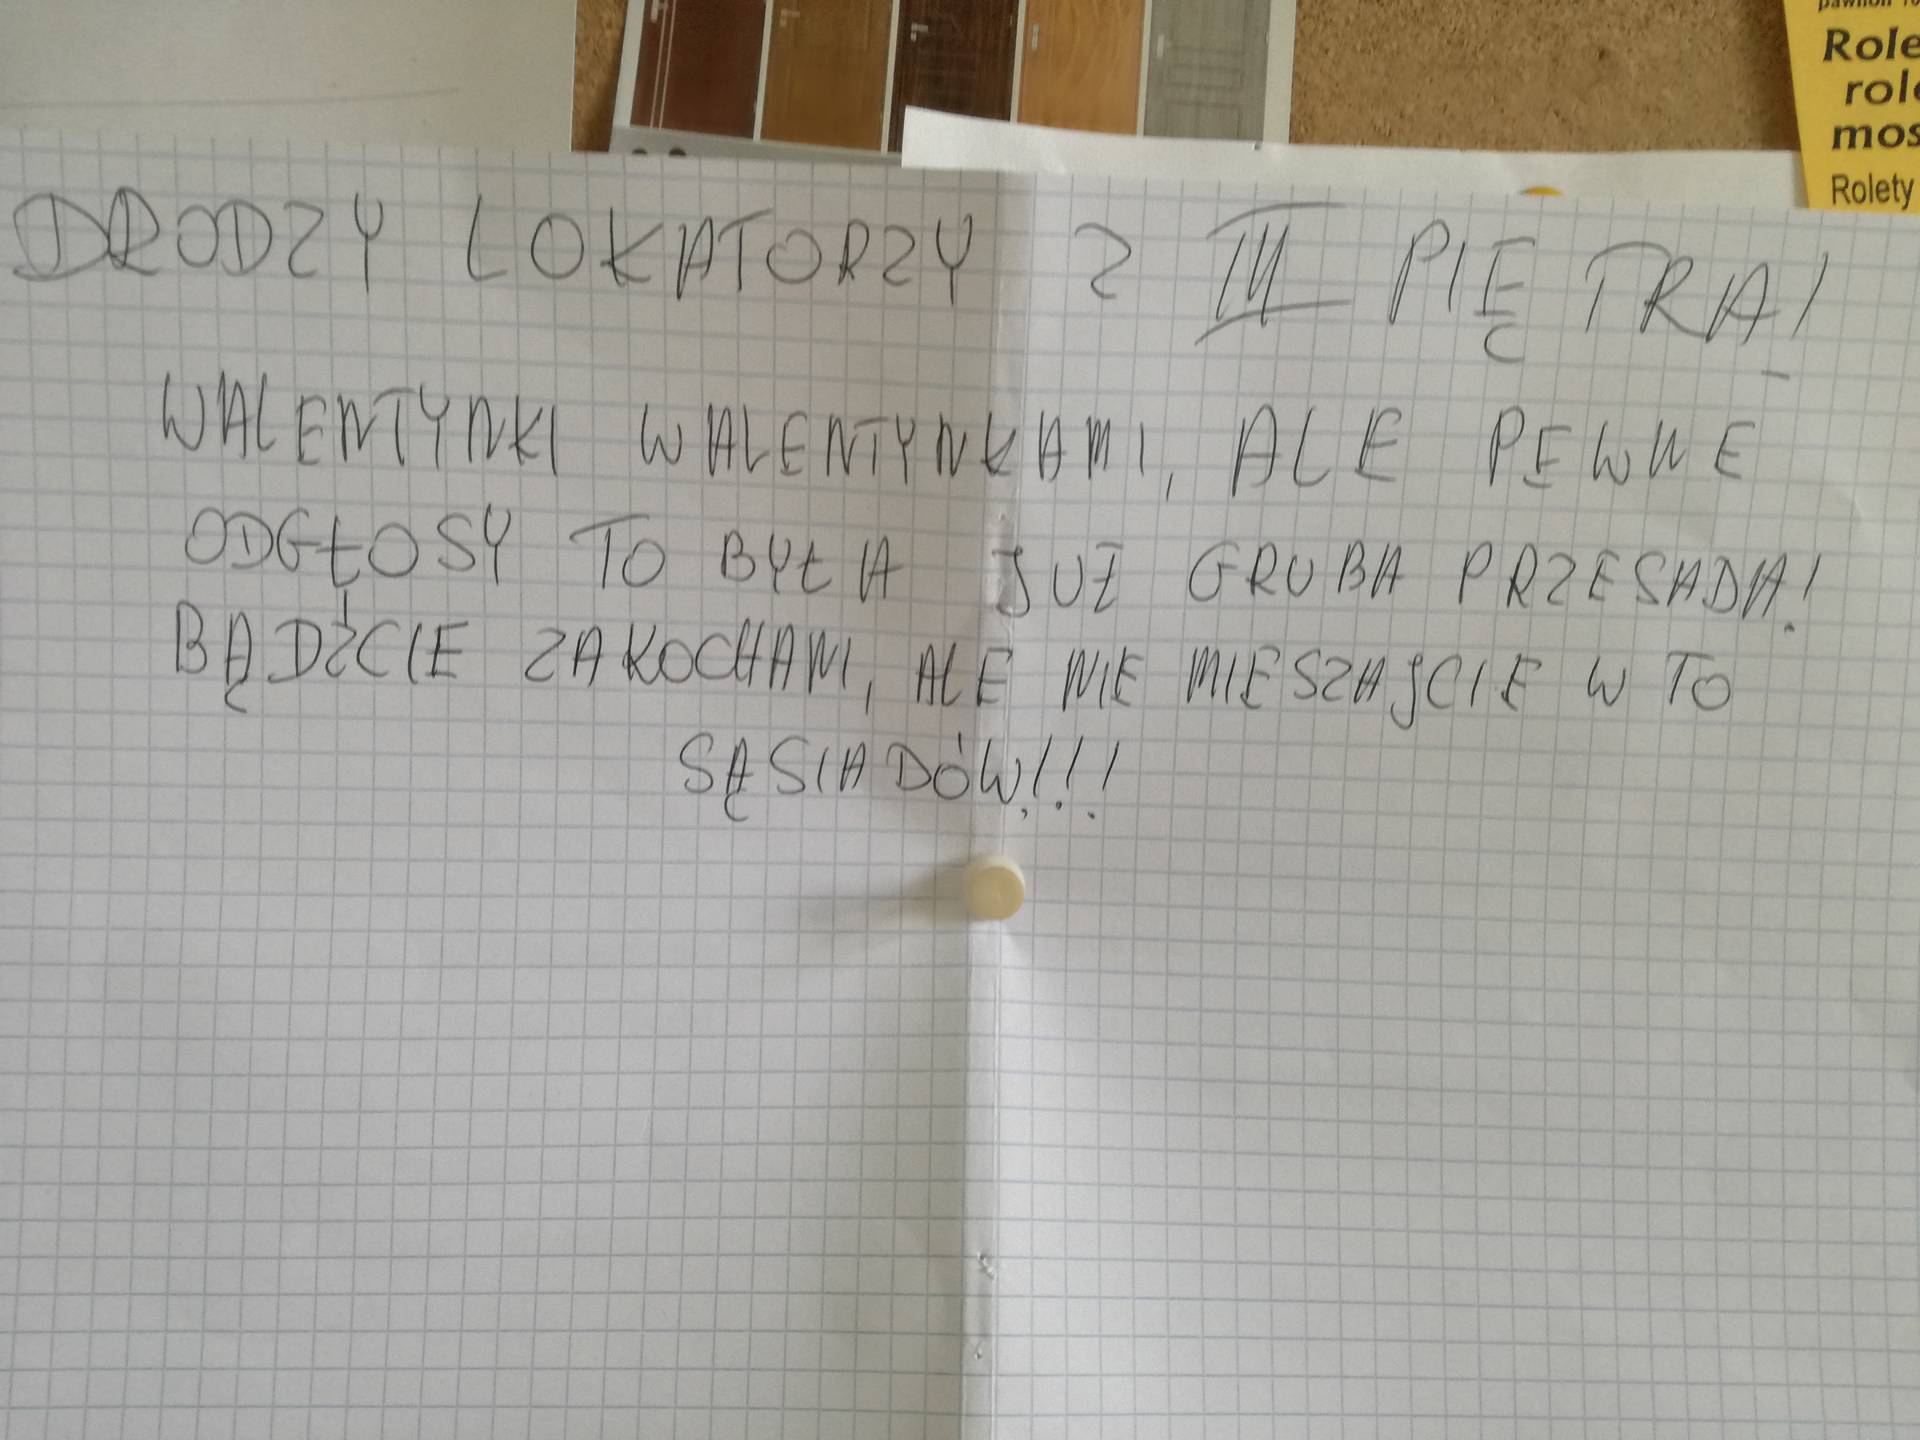 pawilon 10
Role
role
mos
Rolety
DRODZY LOKATORZY Z III PIĘTRA!
WALENTYNKI WALENTYNKAMI, ALE PEWNE
ODGŁOSY TO BYŁA JUŻ GRUBA PRZESADA!
BĄDŹCIE ZAKOCHANI, ALE NIE MIESZAJCIE W TO
SĄSIADÓW!!!